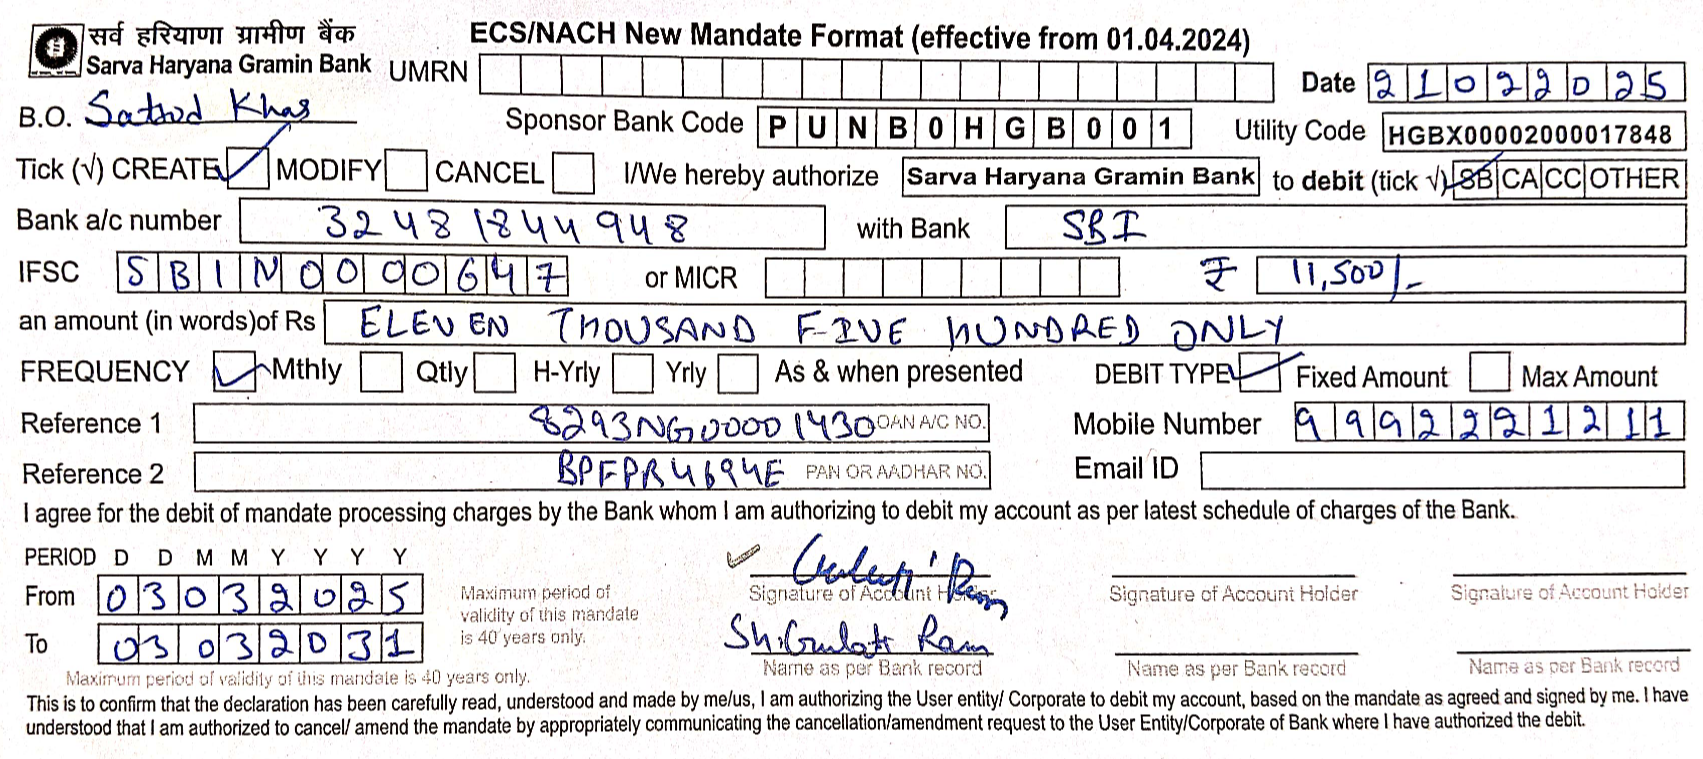 सर्व हरियाणा ग्रामीण बैंक
Sarva Haryana Gramin Bank
ECS/NACH New Mandate Format (effective from 01.04.2024)
UMRN Date 21022025
B.O. Satrod Khas Sponsor Bank Code PUNB0HGB001 Utility Code HGBX00002000017848
Tick (√) CREATE MODIFY CANCEL I/We hereby authorize Sarva Haryana Gramin Bank to debit (tick √) SB CA CC OTHER
Bank a/c number 32481844948 with Bank SBI
IFSC SBIN0000647 or MICR ₹ 11,500/-
an amount (in words)of Rs ELEVEN THOUSAND FIVE HUNDRED ONLY
FREQUENCY Mthly Qtly H-Yrly Yrly As & when presented DEBIT TYPE Fixed Amount Max Amount
Reference 1 8293NG00001430 OAN A/C NO. Mobile Number 9992221211
Reference 2 BPFPR4694E PAN OR AADHAR NO. Email ID
I agree for the debit of mandate processing charges by the Bank whom I am authorizing to debit my account as per latest schedule of charges of the Bank.
PERIOD D D M M Y Y Y Y
From 03032025
To 03032031
Maximum period of
validity of this mandate
is 40 years only.
Maximum period of validity of this mandate is 40 years only.
Gulati Ram
Signature of Account Holder Signature of Account Holder Signature of Account Holder
Sh. Gulati Ram
Name as per Bank record Name as per Bank record Name as per Bank record
This is to confirm that the declaration has been carefully read, understood and made by me/us, I am authorizing the User entity/ Corporate to debit my account, based on the mandate as agreed and signed by me. I have
understood that I am authorized to cancel/ amend the mandate by appropriately communicating the cancellation/amendment request to the User Entity/Corporate of Bank where I have authorized the debit.